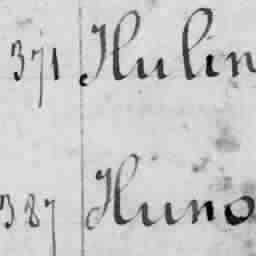 371 Hulin
387 Huno